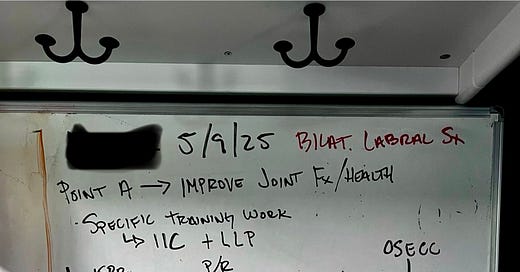 5/9/25 BILAT. LABRAL Sx
POINT A → IMPROVE JOINT Fx/HEALTH
· SPECIFIC TRAINING WORK
↳ IIC + LLP
OSECC
P/R